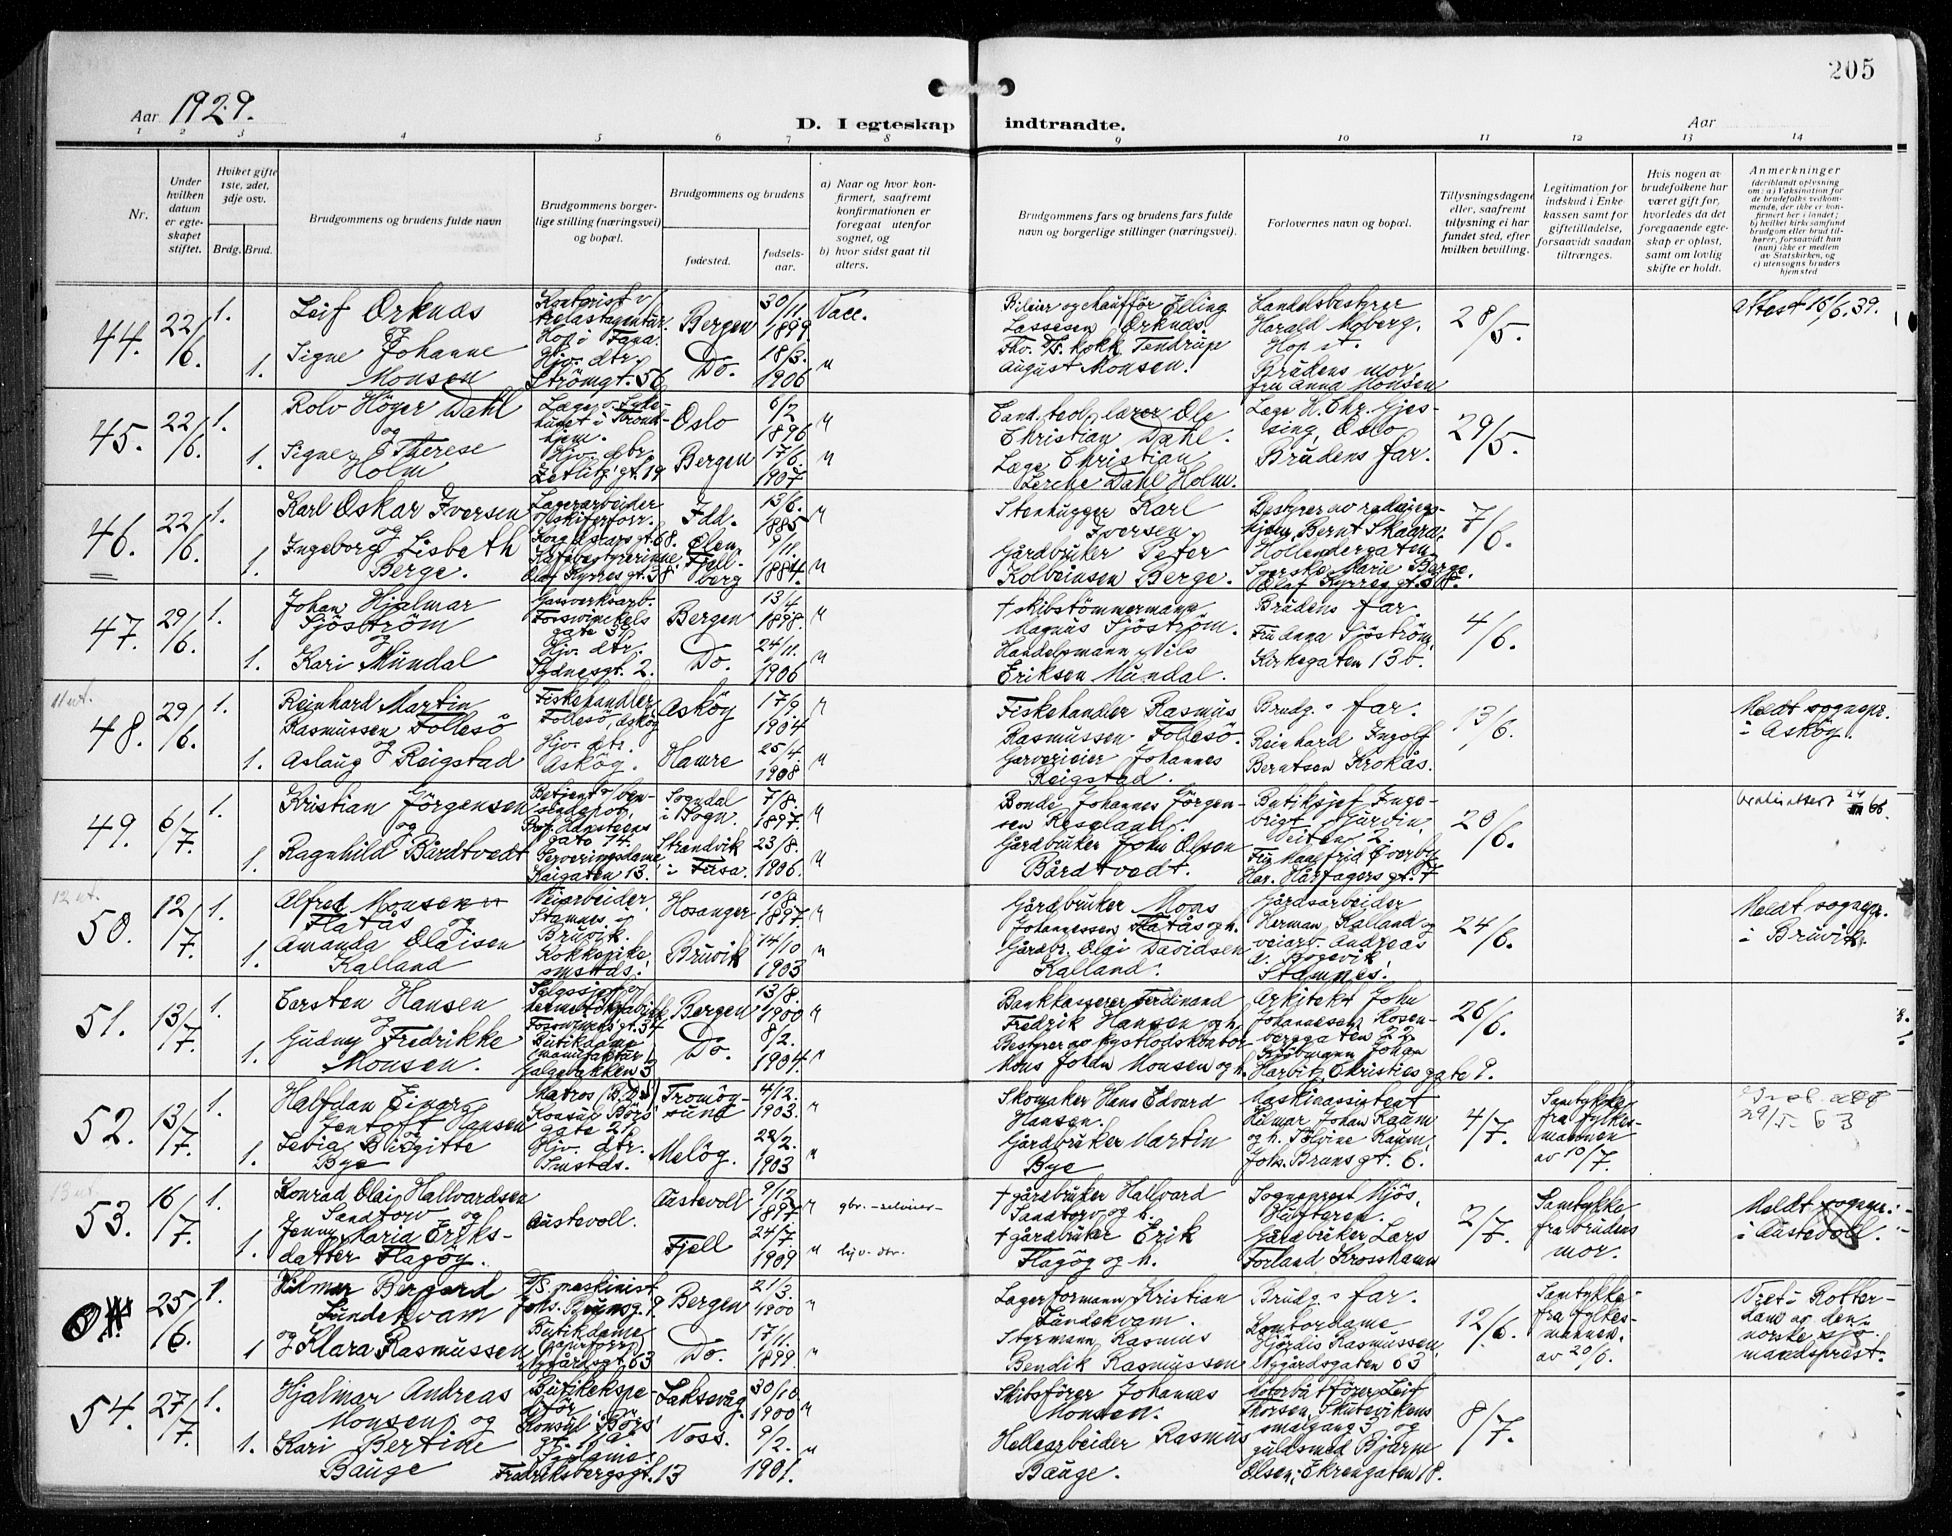 205
Aar 1929.
D. I egteskap indtraadte.
Aar
1 2 3 4 5 6 7 8 9 10 11 12 13 14
Nr.
Under hvilken datum er egteskapet stiftet.
Hvilket gifte 1ste, 2det, 3dje osv.
Brdg. Brud.
Brudgommens og brudens fulde navn
Brudgommens borgerlige stilling (næringsvei) og bopæl.
Brudgommens og brudens
fødested.
fødselsaar.
a) Naar og hvor konfirmert, saafremt konfirmationen er foregaat utenfor sognet, og
b) hvor sidst gaat til alters.
Brudgommens fars og brudens fars fulde navn og borgerlige stillinger (næringsvei).
Forlovernes navn og bopæl.
Tillysningsdagene eller, saafremt tillysning ei har fundet sted, efter hvilken bevilling.
Legitimation for indskud i Enkekassen samt for giftetilladelse, forsaavidt saadan tiltrænges.
Hvis nogen av brudefolkene har været gift før, hvorledes da det foregaaende egteskap er opløst, samt om lovlig skifte er holdt.
Anmerkninger
44. 22/6. 1. 1.
Leif Orknæs
Signe Johanne
Monsen
Hop i Fana.
Hjv. dtr.
Strömgt. 56
Bergen 30/11. 1899
Do. 18/3. 1906
Vacc.
Bileier og chaufför Elling
Lassesen Orknæs.
August Monsen.
Handelsbestyrer
Harald Moberg.
Hop st.
Brudens mor
fru Anna Monsen
28/5.
attest 15/6.39.
45. 22/6. 1. 1.
Rolv Höyer Dahl
og
Signe Therese
Holm
Hjv. dtr.
Zetlitz gt. 19
Oslo 6/2 1896
Bergen 17/6. 1907
Cand. teol, lærer Ole
Christian Dahl.
Læge Christian
Lerche Dahl Holm.
Læge H. Chr. Gjessing, Oslo
Brudens far.
29/5.
46. 22/6. 1. 1.
Karl Oskar Iversen
og
Ingeborg Lisbeth
Berge.
Lagerarbeider
Kafebestyrerinne
Olaf Kyrres gt. 38
Idd. 13/6. 1885
Ølen, Fjellberg 9/11. 1884
Stenhugger Karl
Iversen.
Gårdbruker Peter
Kolbeinsen Berge.
Hollendergaten
Marie Berge
Olaf Kyrres gt. 38.
7/6.
47. 29/6. 1. 1.
Johan Hjalmar
Sjöström
og
Kari Mundal
Gassverksarb.
Hjv. dtr.
Sydnesgt. 2.
Bergen 13/4 1898.
Do. 24/11. 1906
† skibstömmermann
Magnus Sjöström.
Handelsmann Nils
Eriksen Mundal.
Brudens far.
Fru Inga Sjöström,
Kirkegaten 13 b.
4/6.
11 ut.
48. 29/6. 1. 1.
Reinhard Martin
Rasmussen Follesö
og
Aslaug Reigstad
Fiskehandler
Follesö, Asköy
Hjv. dtr.
Asköy.
Asköy 17/9 1904
Hamre 25/4. 1908
Fiskehandler Rasmus
Rasmussen Follesö.
Garverieier Johannes
Reigstad.
Brudg.s far.
Reinhard Ingolf
Berntsen Krokås.
13/6.
Meldt sognepr.
i Asköy.
49. 6/7. 1. 1.
Kristian Jörgensen
og
Ragnhild Bårdtvedt
Prof. Hansteens
gate 74.
Serveringsdame
Kaigaten 13.
Sogndal i Sogn. 7/8. 1897.
Strandvik i Fusa. 23/8. 1906.
Bonde Johannes Jörgensen Resaland.
Gårdbruker John Olson
Bårdtvedt.
Har. Hårfagers gt. 7
20/6.
12 ut.
50. 12/7. 1. 1.
Alfred Monsen
Flatås og
Amanda Olaisen
Kalland
Veiarbeider.
Stamnes i
Bruvik.
Kokkepike
smstds.
Hosanger 10/8 1897.
Bruvik 14/10 1903
Gårdbruker Mons
Johannessen Flatås og h.
Gårdbr. Olai Davidsen
Kalland.
Gårdsarbeider
Herman Kalland og
veiarb. Andreas
Stamnes.
24/6.
Meldt sognepr.
i Bruvik.
51. 13/7. 1. 1.
Carsten Hansen
og
Gudny Fredrikke
Monsen.
Butikdame
Galgebakken 3
Bergen 13/8. 1900
Do. 8/2. 1904.
Bankkasserer Ferdinand
Fredrik Hansen og h.
Mons Johan Monsen og h.
Arkitekt John
Johannesen Rosenberggaten 22
Kjøbmann Johan
Harbitz Christies gate 9.
26/6.
52. 13/7. 1. 1.
Halfdan Einar
Jentoft Hansen
og
Sevia Birgitte
Bye
Matros (B.D.S.)
Konsul Börs
gate 21
Hjv. dtr.
Smstds.
Tromösund 4/12. 1903.
Melöy. 22/2. 1903
Skomaker Hans Edvard
Hansen.
Gårdbruker Martin
Bye
Maskinassistent
Hilmar Johan Raum
og h. Solvine Raum,
Johs. Bruns gt. 6.
4/7.
Samtykke
fra fylkesmannen
av 10/7.
29/5 63
13 ut.
53. 16/7. 1. 1.
Konrad Olai Hallvardsen
Sandtorv og
Jenny Maria Eriksdatter Flagöy.
Austevoll.
Austevoll 9/12 1897
Fjell 24/7. 1909
gbr.-selveier-
hjv. dtr.
† gårdbruker Hallvard
Sandtorv og h.
† gårdbruker Erik
Flagöy og h.
Sogneprest Mjös,
Hufteren.
Gårdbruker Lars
Forland Krosshamn
2/7.
Samtykke
fra brudens
mor.
Meldt sognepr.
i Austevoll.
25/6. 1. 1
Hilmar Bergard
Lundekvam
og Klara Rasmussen
D/S. maskinist
Johs. Brunsg. 9.
Butikdame
Nygårdsgt. 63
Bergen 21/3. 1900
Do. 17/11. 1899
Lagerformann Kristian
Lundekvam.
Styrmann Rasmus
Bendik Rasmussen
Brudg.s far.
Kontordame
Hjördis Rasmussen,
Nygårdsgaten 63
12/6.
Samtykke
fra fylkesmannen.
av 20/6.
Viet i Rotterdam av den
norske sjömandsprest.
54. 27/7. 1. 1.
Hjalmar Andreas
Monsen og
Kari Bertine
Bauge
Butikekspeditör
Konsul Börs
Fredriksbergsgt. 13
Laksevåg 30/10 1900
Voss. 9/2. 1901.
Skibsförer Johannes
Monsen.
Hellearbeider Rasmus
Bauge.
Motorbåtförer Leif
Thorsen, Skutevikens
smalgang 3 og
guldsmed Bjarne
Olsen, Ekrengaten 18.
8/7.